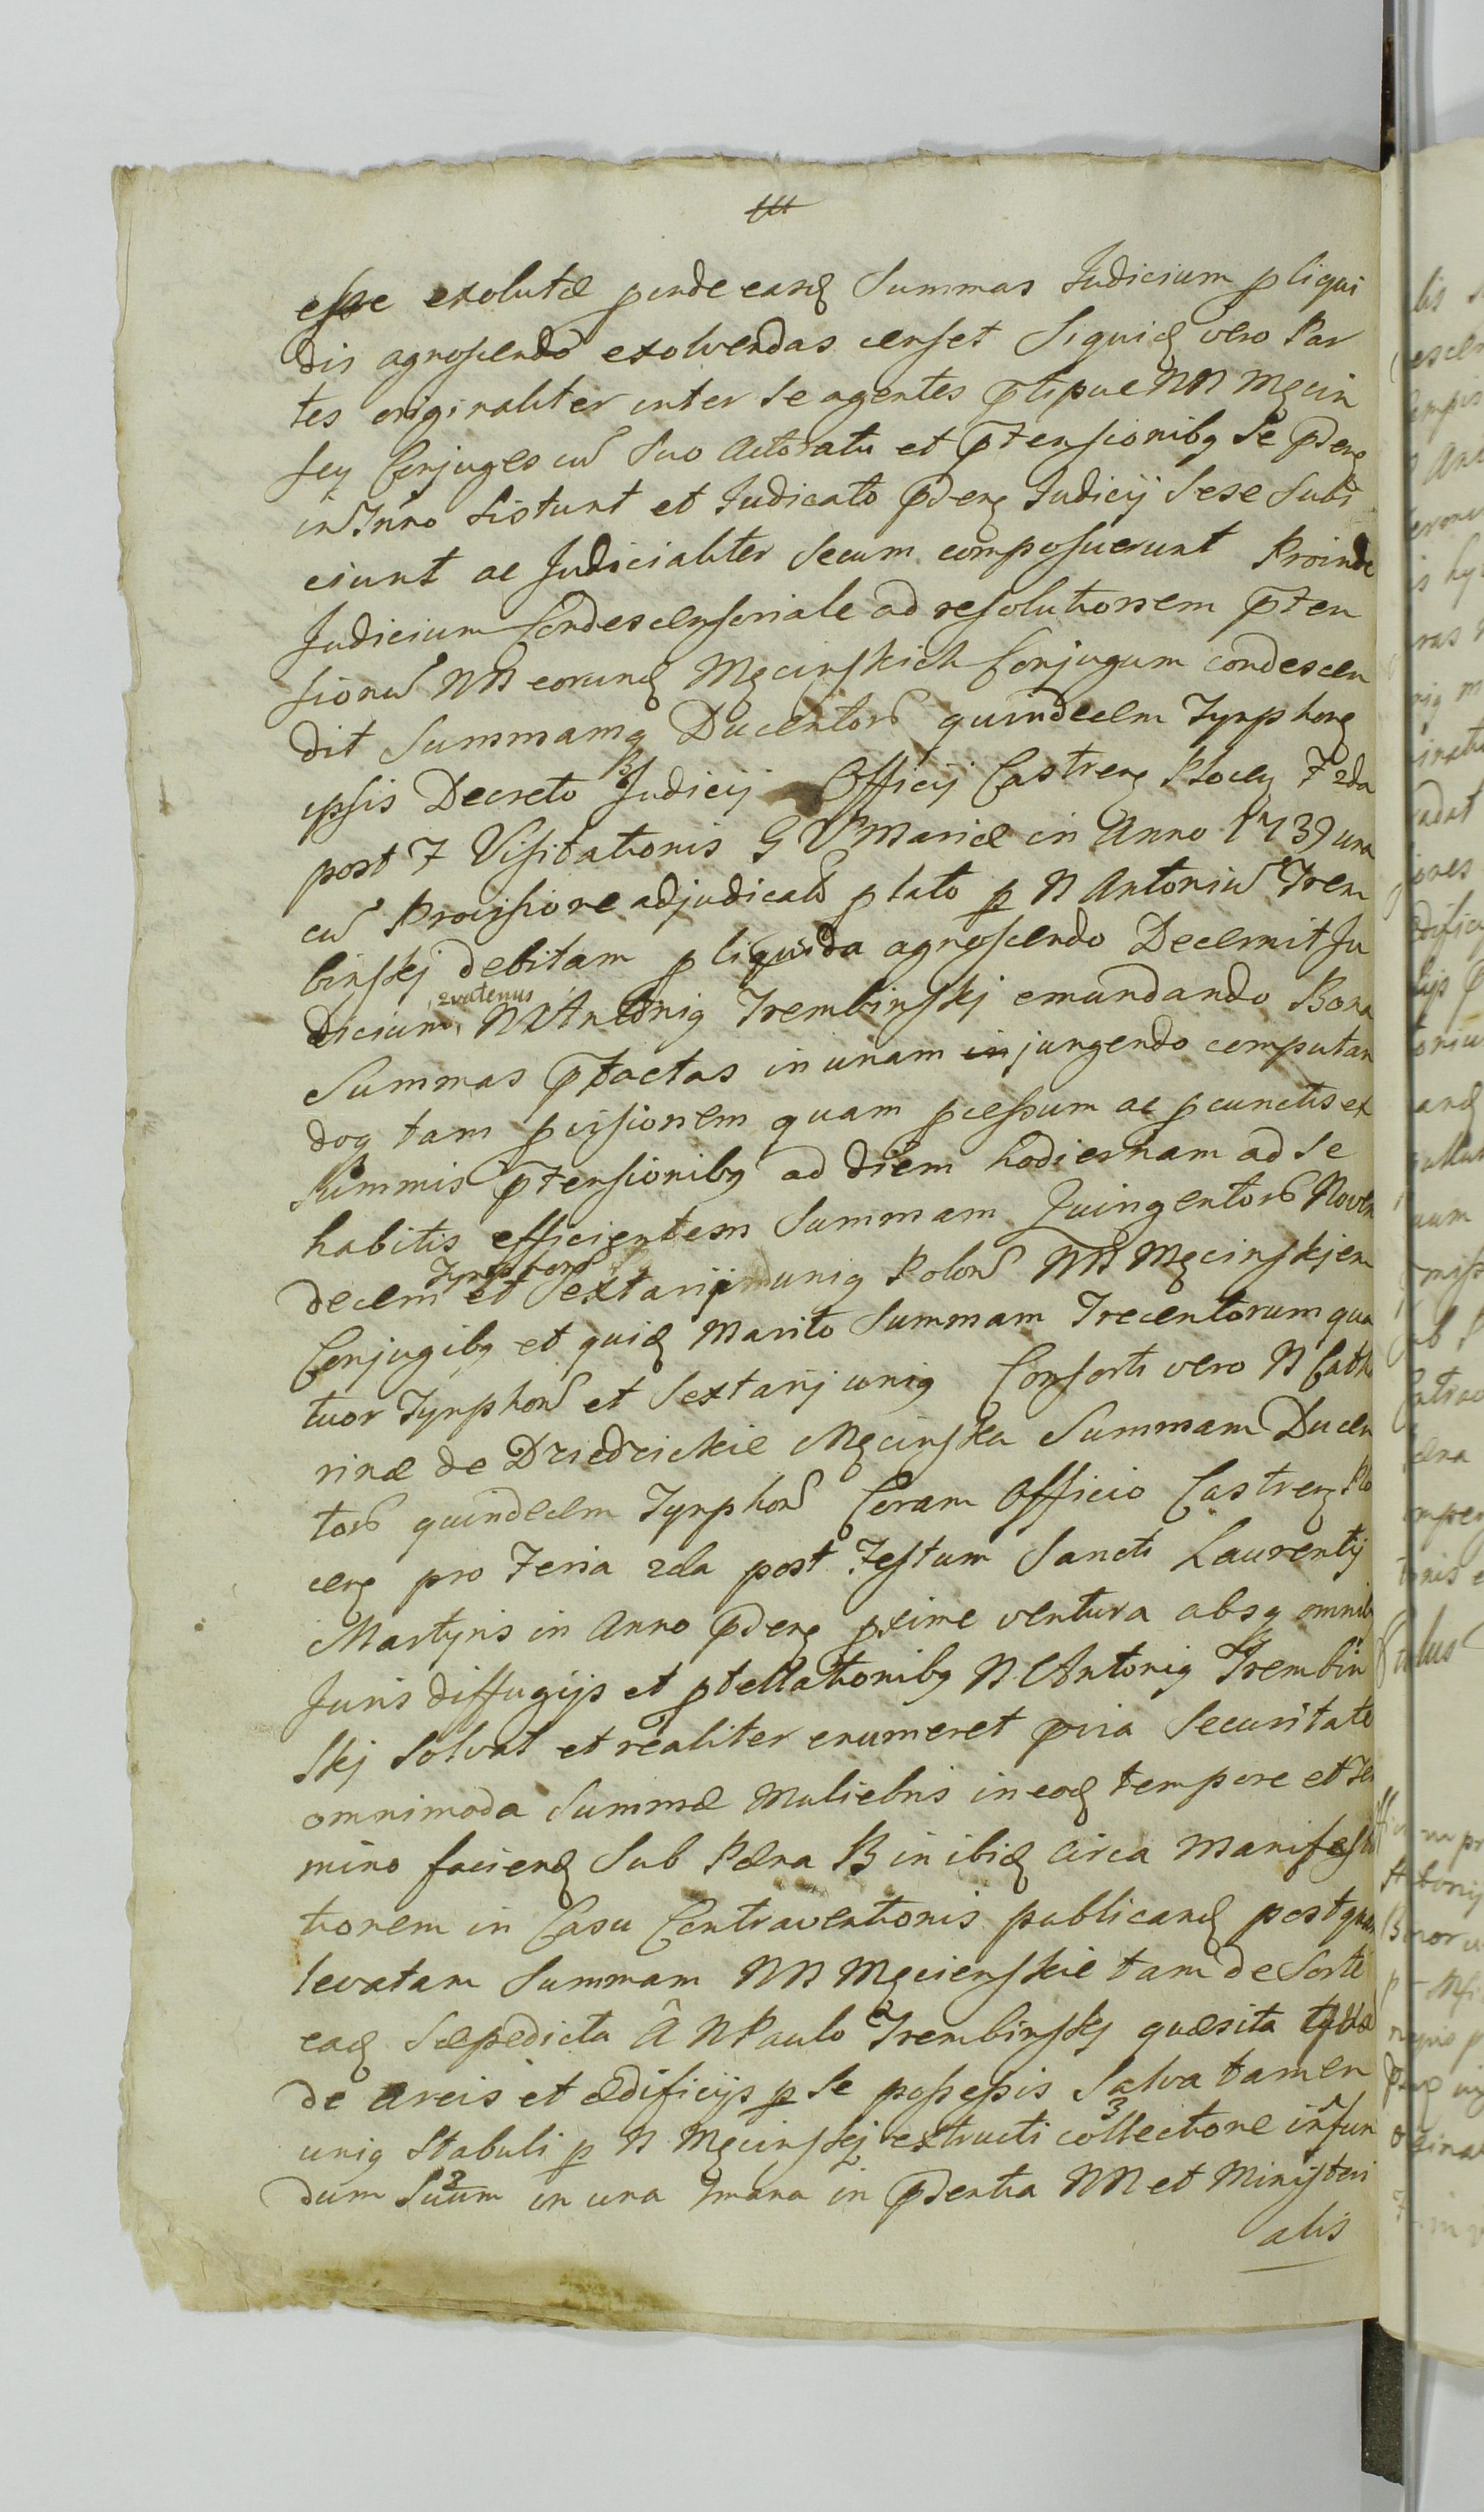 esse exolutæ perde easq Summas Judicium p liqui
dis agroscendo exolvendas censet Siquiq vero Par
tes originaliter inter Se agentes ptipue NN Męcin
scy Conjuges cu Suo Actoratu et ptensionibq Se pdenq
in Trno Sistunt et Judicato pdenq Judicij Sese Subi
ciunt ac Judicialiter Secum composuerunt Proinde
Judicium Condescensoriale ad resolutionem pten
sionu NN eorunq Męcinskich Conjugum condescen
dit Summamq Ducentoru quindecem Tynphonq
ipsis Decreto Judicij Officij Castrenq Plocq F 2da
post F Visitationis G V Mariæ in Anno 1739 una
cu Provisione adjudicato p lato p N Antoniu Trem
binskj debitam p liquida agroscendo Decernit Ju
dicium quatenus N Antoniq Trembinskj emundando Bona
Summas ptactas in unam jungendo computan
doq tam pvisionem quam pcessum ac p cunctis et
Summis ptensionibq ad diem hodiernam ad Se
habitis efficientem Summam Quingentoru Noven
decem Tynphonu et Sextarij uniq Polonu NN Męcinskjem
Conjugibq et quiq Marito Summam Trecentorum qua
tuor Tynphonu et Sextarij uniq Consorti vero N Cath
rinæ de Dziedzickie Męcinska Summam Ducen
toru quindecem Tynphonu Coram Officio Castrenq Plo
cenq pro Feria 2da post Festum Sancti Laurentij
Martyris in Anno pdenq pxime ventura absq omnib
Juris diffugijs et ptellationibq N Antoniq Trembin
skj Solvat et realiter enumeret pvia Securitate
omnimoda Summæ Muliebris in eoq tempore et Ter
mino facienq Sub Pæna B in ibiq circa Manifesta
tionem in Casu Contraventionis publicanq postquam
levatam Summam NN Męcienskie tam de Sorte
eaq Sæpedicta â N Paulo Trembinskj quæsita
de areis et ædificijs p Se possessis Salva tamen
uniq Stabuli p N Męcinskj extructi collectione in fun
dum Suum in una Imana in pdentia NN et Ministeri
alis